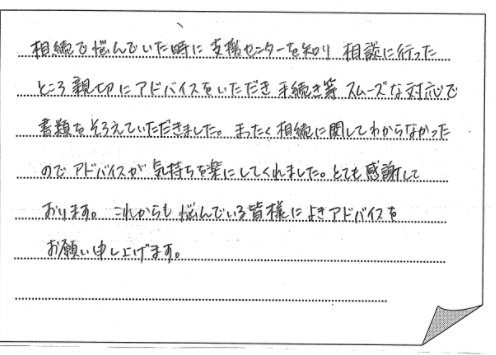 相続で悩んでいた時に支援センターを知り 相談に行った
ところ親切にアドバイスをいただき 手続き等 スムーズな対応で
書類をそろえていただきました。まったく相続に関してわからなかった
のでアドバイスが気持ちを楽にしてくれました。とても感謝して
おります。これからも悩んでいる皆様によきアドバイスを
お願い申し上げます。